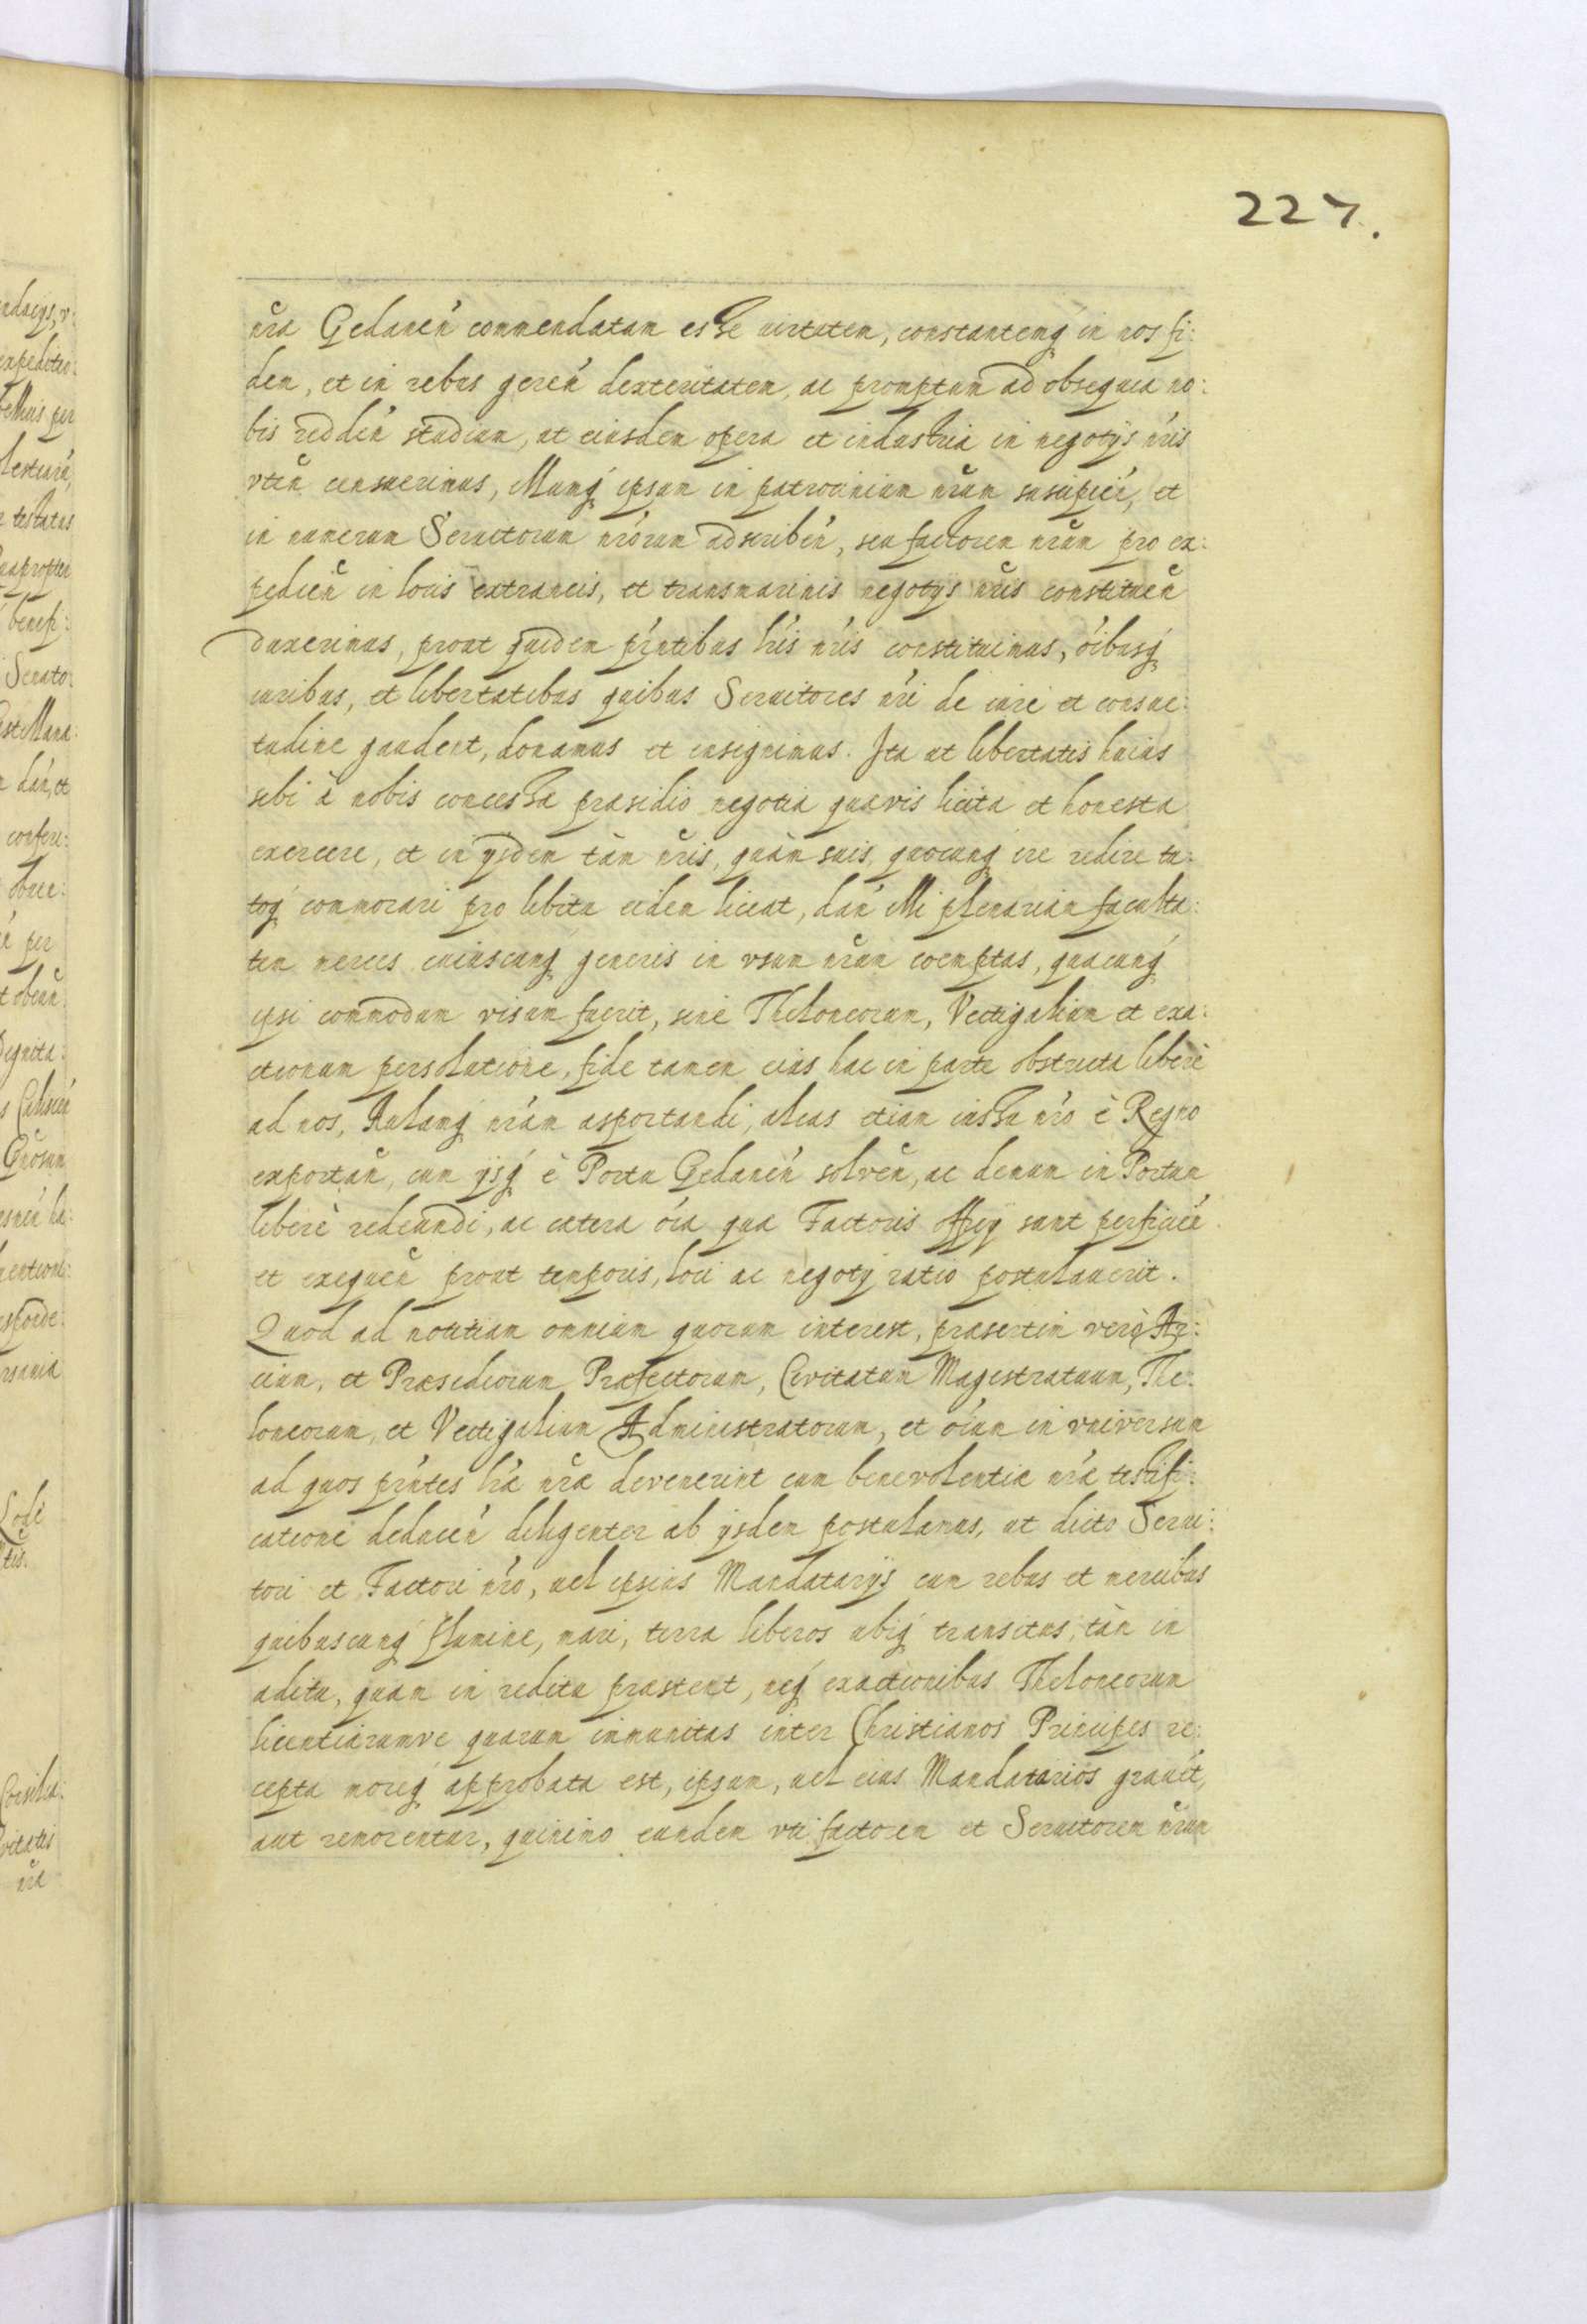 227.
nr̃a Gedaneñ commendatam esse uirtutem, constantemq́ in nos fi:
dem, et in rebus gereń dexteritatem, ac promptum ad obsequia no:
bis reddeń studium, ut eiusdem opera et industria in negotijs nŕis
vteñ censuerimus, Illumq́ ipsum in patrocinium nr̃um suscipień, et
in numerum Seruitorum nŕorum adscribeń, seu factorem nr̃um pro ex:
pedieñ in locis extraneis, et transmarinis negotijs nr̃is constitueñ
duxerimus, prout quidem pŕntibus lŕis nŕis constituimus, oíbusq́
iuribus, et libertatibus quibus Seruitores nŕi de iure et consue:
tudine gaudent, donamus et insignimus. Ita ut libertatis huius
sibi à nobis concessæ præsidio negotia quævis licita et honesta
exercere, et in ijsdem tàm nr̃is, quàm suis, quocunq́ ire redire tu:
toq́ commorari pro libitu eidem liceat, dań Illi plenariam faculta:
tem merces cuiuscunq́ generis in vsum nr̃um coemptas, quacunq́
ipsi commodum visum fuerit, sine Theloneorum, Vectigalium et exa:
ctionum persolutione, fide tamen eius hac in parte obstricta liberè
ad nos, Aulamq́ nŕam asportandi, alias etiam iussu nŕo è Regno
exportañ, cum ijsq́ è Portu Gedaneń solveñ, ac demum in Portum
liberè redeundi, ac cætera oía quæ Factoris officij sunt perficień
et exequeñ prout temporis, loci ac negotij ratio postulauerit.
Quod ad notitiam omnium quorum interest, præsertim verò Ar:
cium, et Præsidiorum Præfectorum, Civitatum Magistratuum, The:
loneorum, et Vectigalium Administratorum, et oíum in vniversum
ad quos pŕntes lŕæ nr̃æ devenerint cum benevolentiæ nŕæ testifi:
catione deducień diligenter ab ijsdem postulamus, ut dicto Serui:
tori et Factori nŕo, uel ipsius Mandatarijs cum rebus et mercibus
quibuscunq́ flumine, mari, terra liberos ubiq́ transitus, tàm in
aditu, quam in reditu præstent, neq́ exactionibus Theloneorum
licentiarumve quarum immunitas inter Christianos Principes re:
cepta moreq́ approbata est, ipsum, uel eius Mandatarios grauét,
aut remorentur, quinimo eundem vti factorem et Seruitorem nr̃um